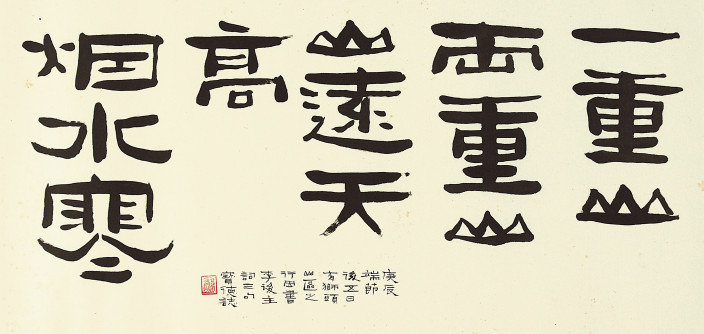 一重山
両重山
山遠天
高
烟水寒
庚辰
端節
後五日
獅頭
山區之
行因書
李後主
詞三句
寶德誌